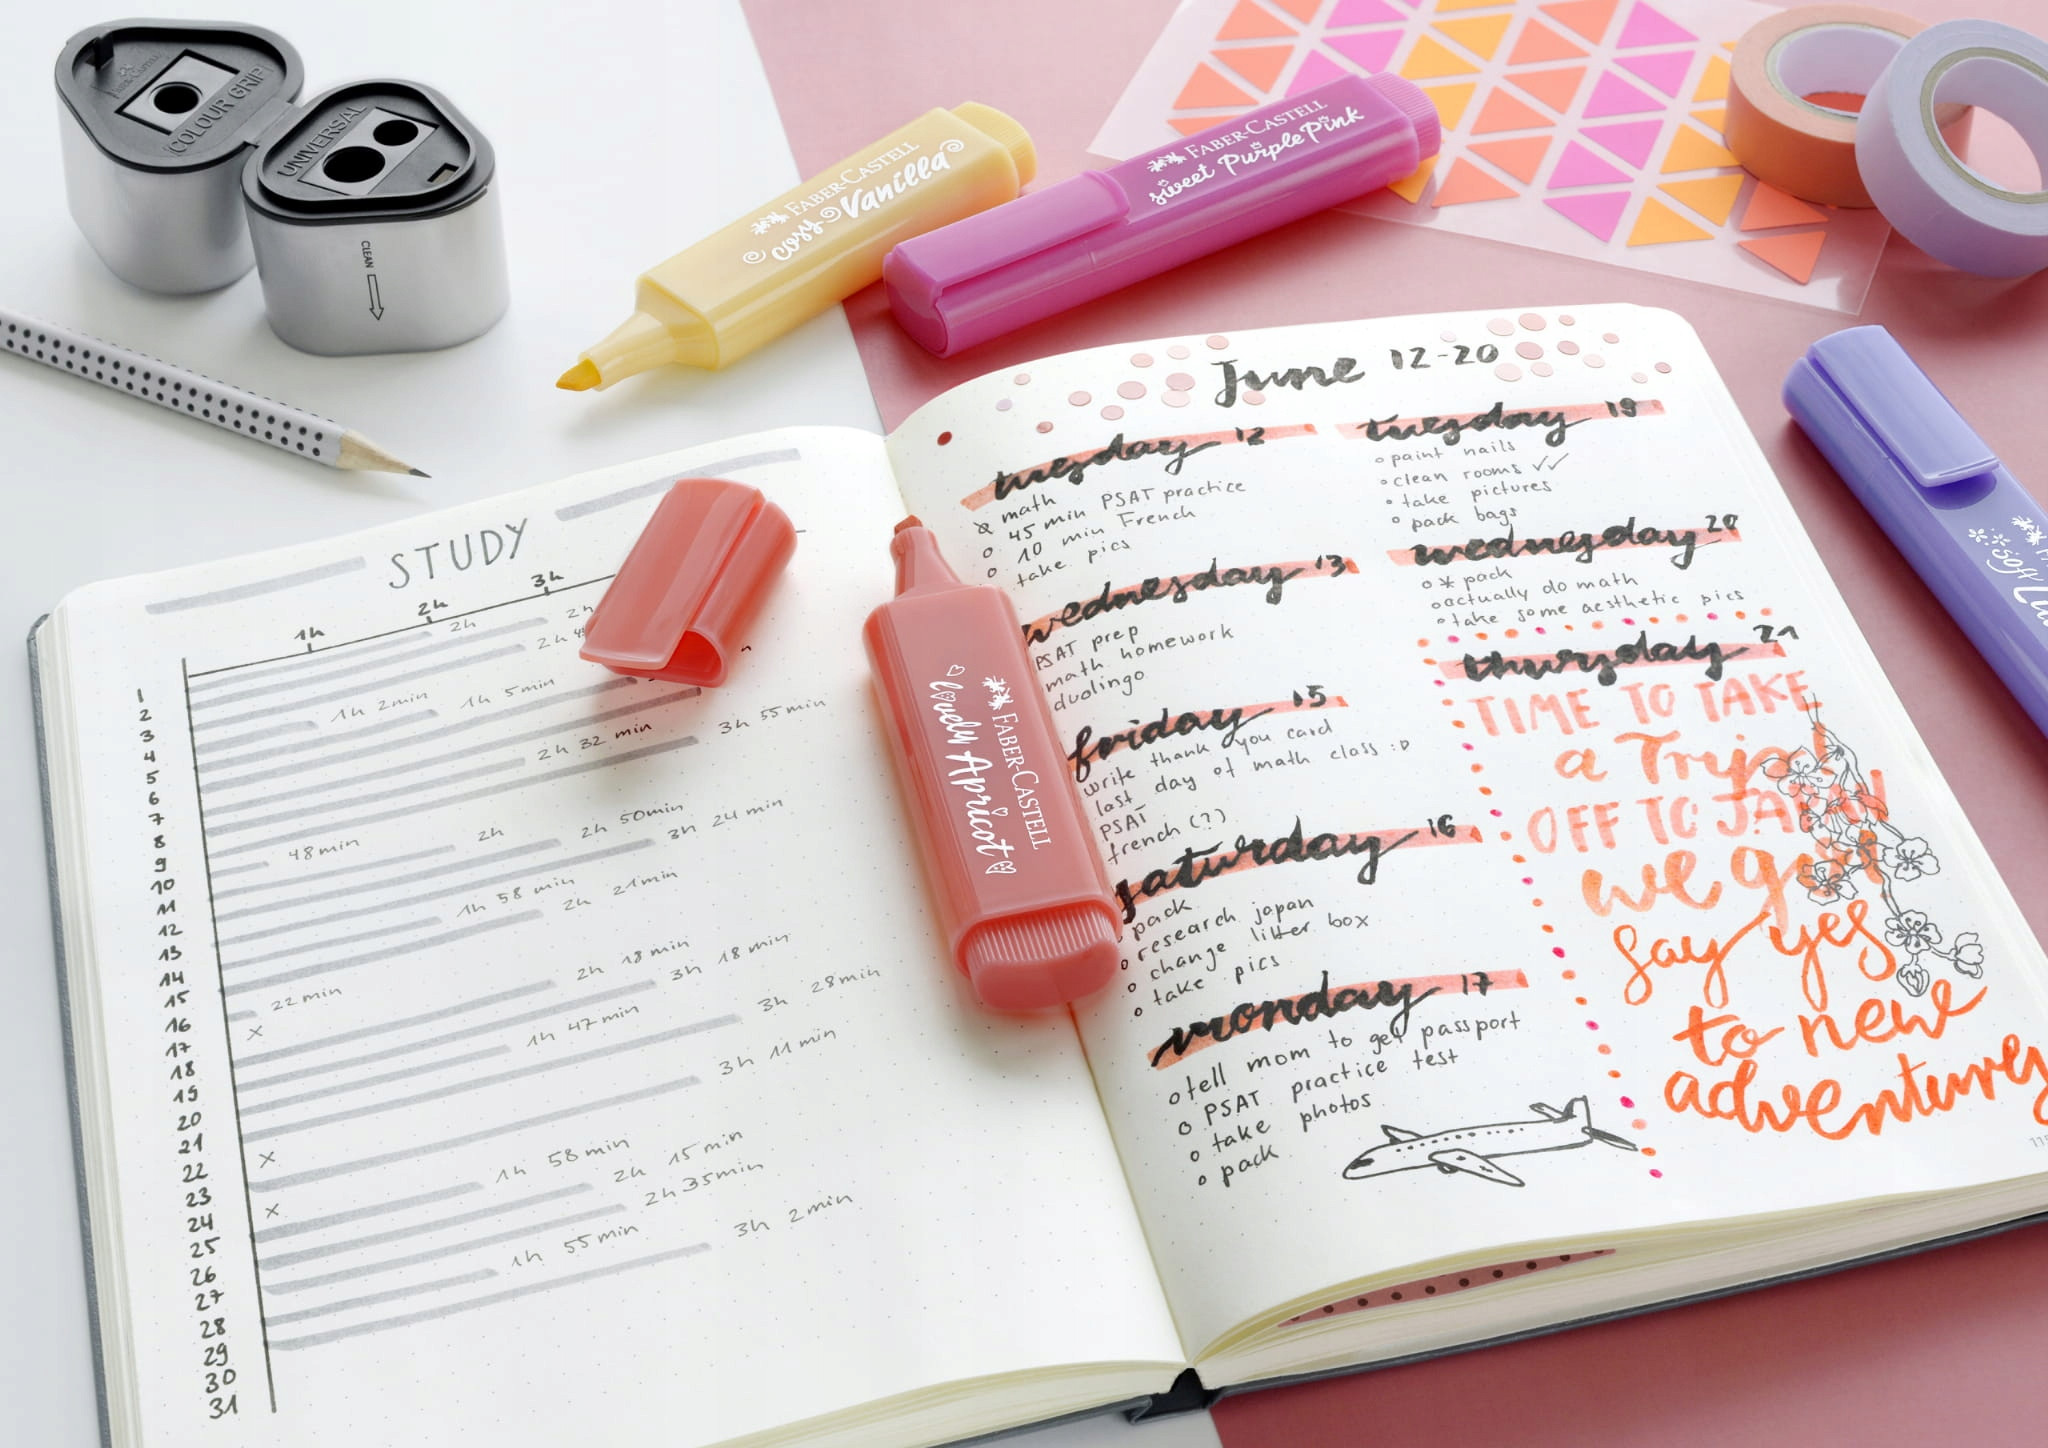 FABER-CASTELL
COLOUR GRIP
UNIVERSAL
CLEAN
FABER-CASTELL
cosy Vanilla
FABER-CASTELL
sweet Purple Pink
FABER-CASTELL
lovely Apricot
soft
STUDY
1h
2h
3h
2h
2h
2h
1h 2min
1h 5min
2h 32 min
3h 55min
48min
2h
2h 50min
3h 24min
1h 58 min
2h 21min
22min
2h 18min
3h 18min
x
1h 47min
3h 28min
3h 11min
x
1h 58min
x
2h 15min
2h 35min
1h 55min
3h 2min
1
2
3
4
5
6
7
8
9
10
11
12
13
14
15
16
17
18
19
20
21
22
23
24
25
26
27
28
29
30
31
June 12-20
tuesday 12
math
45 min PSAT practice
10 min French
take pics
wednesday 13
PSAT prep
math homework
duolingo
friday 15
write thank you card
last day of math class :D
PSAT
french (?)
saturday 16
pack
research japan
change litter box
take pics
monday 17
tell mom to get passport
PSAT practice test
take photos
pack
tuesday 19
paint nails
clean rooms ✓✓
take pictures
pack bags
wednesday 20
* pack
actually do math
take some aesthetic pics
thursday 21
TIME TO TAKE
a Trip!
OFF TO JAPAN
we go
say yes
to new
adventures